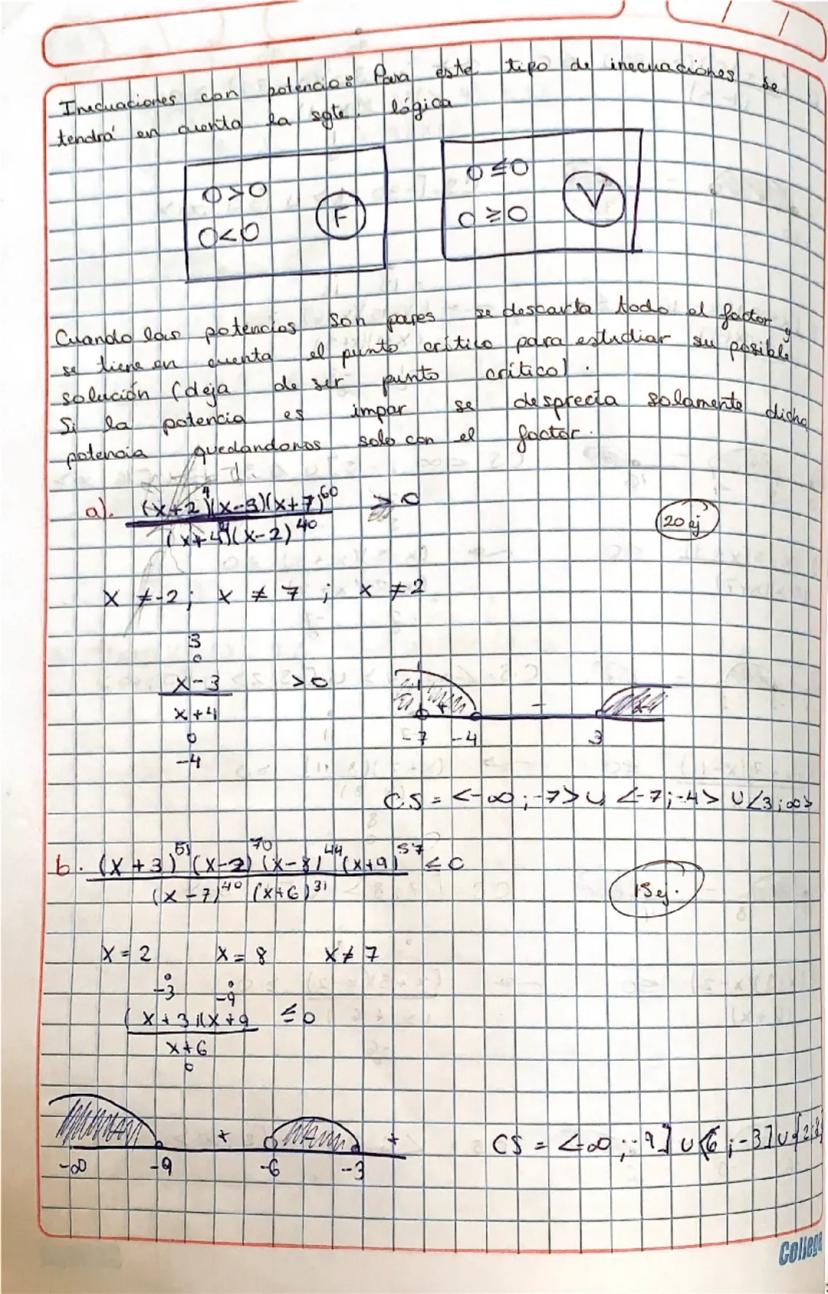 Inecuaciones con potencias: Para este tipo de inecuaciones se
tendrá en cuenta la sgte. lógica
0>0
0<0
F
0≤0
0≥0
V
Cuando las potencias son pares se descarta todo el factor y
se tiene en cuenta el punto crítico para estudiar su posible
solución (deja de ser punto crítico).
Si la potencia es impar se desprecia solamente dicha
potencia quedandonos solo con el factor.
a). (x+2)⁴(x-3)(x+7)⁶⁰ > 0
(x+4)(x-2)⁴⁰
20 ej
x ≠ -2; x ≠ 7 ; x ≠ 2
3
x-3 >0
x+4
-4
+ -
-7 -4 3
C.S = <-∞ ; -7> U <-7;-4> U <3;∞>
b. (x+3)⁵¹(x-2)⁷⁰(x-8)⁴⁴(x+9)⁵⁷ ≤ 0
(x-7)⁴⁰ (x+6)³¹
15 ej.
x = 2 x = 8 x ≠ 7
-3 -9
(x+3)(x+9 ≤ 0
x+6
+ +
-∞ -9 -6 -3
CS = <-∞ ; -9] U <6 ; -3] U {2;8}
College